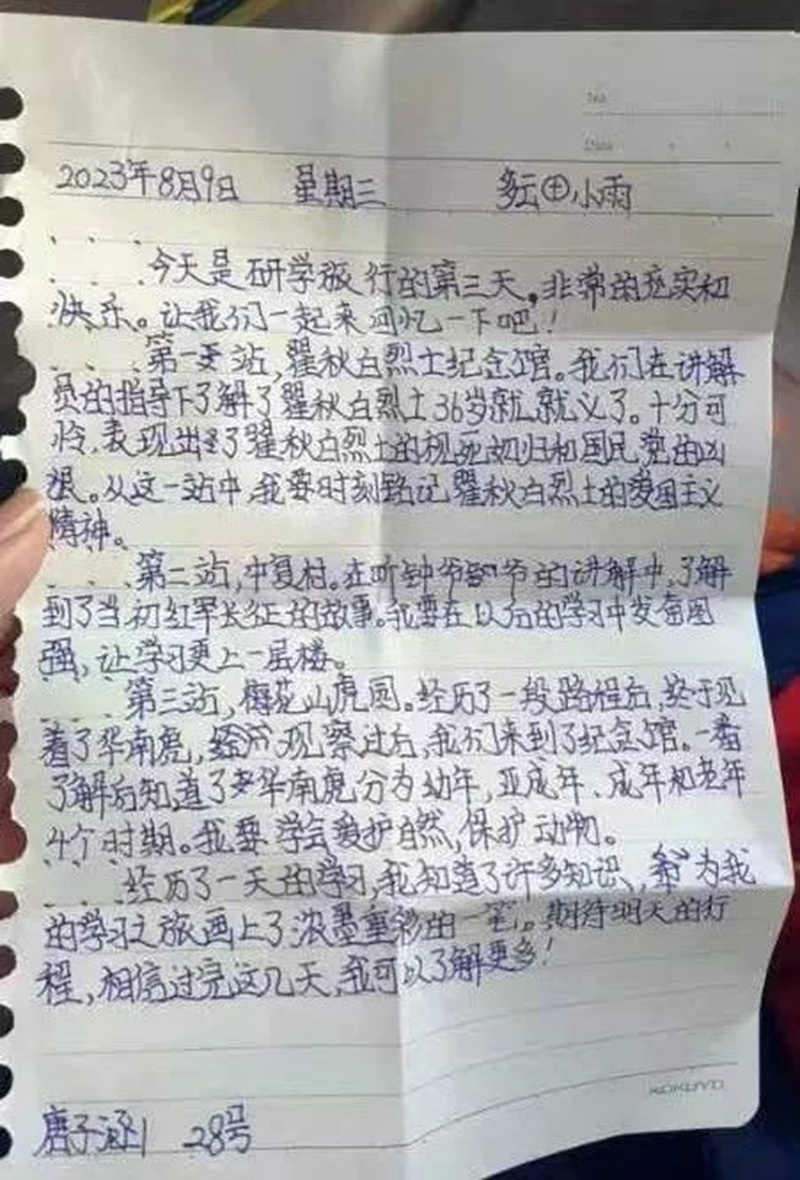 No.
Date
2023年8月9日 星期三 多云⊕小雨
今天是研学旅行的第三天,非常的充实和
快乐。让我们一起来回忆一下吧!
第一站,瞿秋白烈士纪念馆。我们在讲解
员的指导下了解了瞿秋白烈士36岁就就义了。十分可
怜,表现出了瞿秋白烈士的视死如归和国民党的凶
狠。从这一站中,我要时刻铭记瞿秋白烈士的爱国主义
精神。
第二站,中复村。在听钟爷爷的讲解中,了解
到了当初红军长征的故事。我要在以后的学习中发奋图
强,让学习更上一层楼。
第三站,梅花山虎园。经历了一段路程后,终于见
着了华南虎,观察过后,我们来到了纪念馆。一番
了解后知道了华南虎分为幼年,亚成年、成年和老年
4个时期。我要学会爱护自然,保护动物。
经历了一天的学习,我知道了许多知识,为我
的学习之旅画上了浓墨重彩的一笔。期待明天的行
程,相信过完这几天,我可以了解更多!
KOKUYO
唐子涵 28号